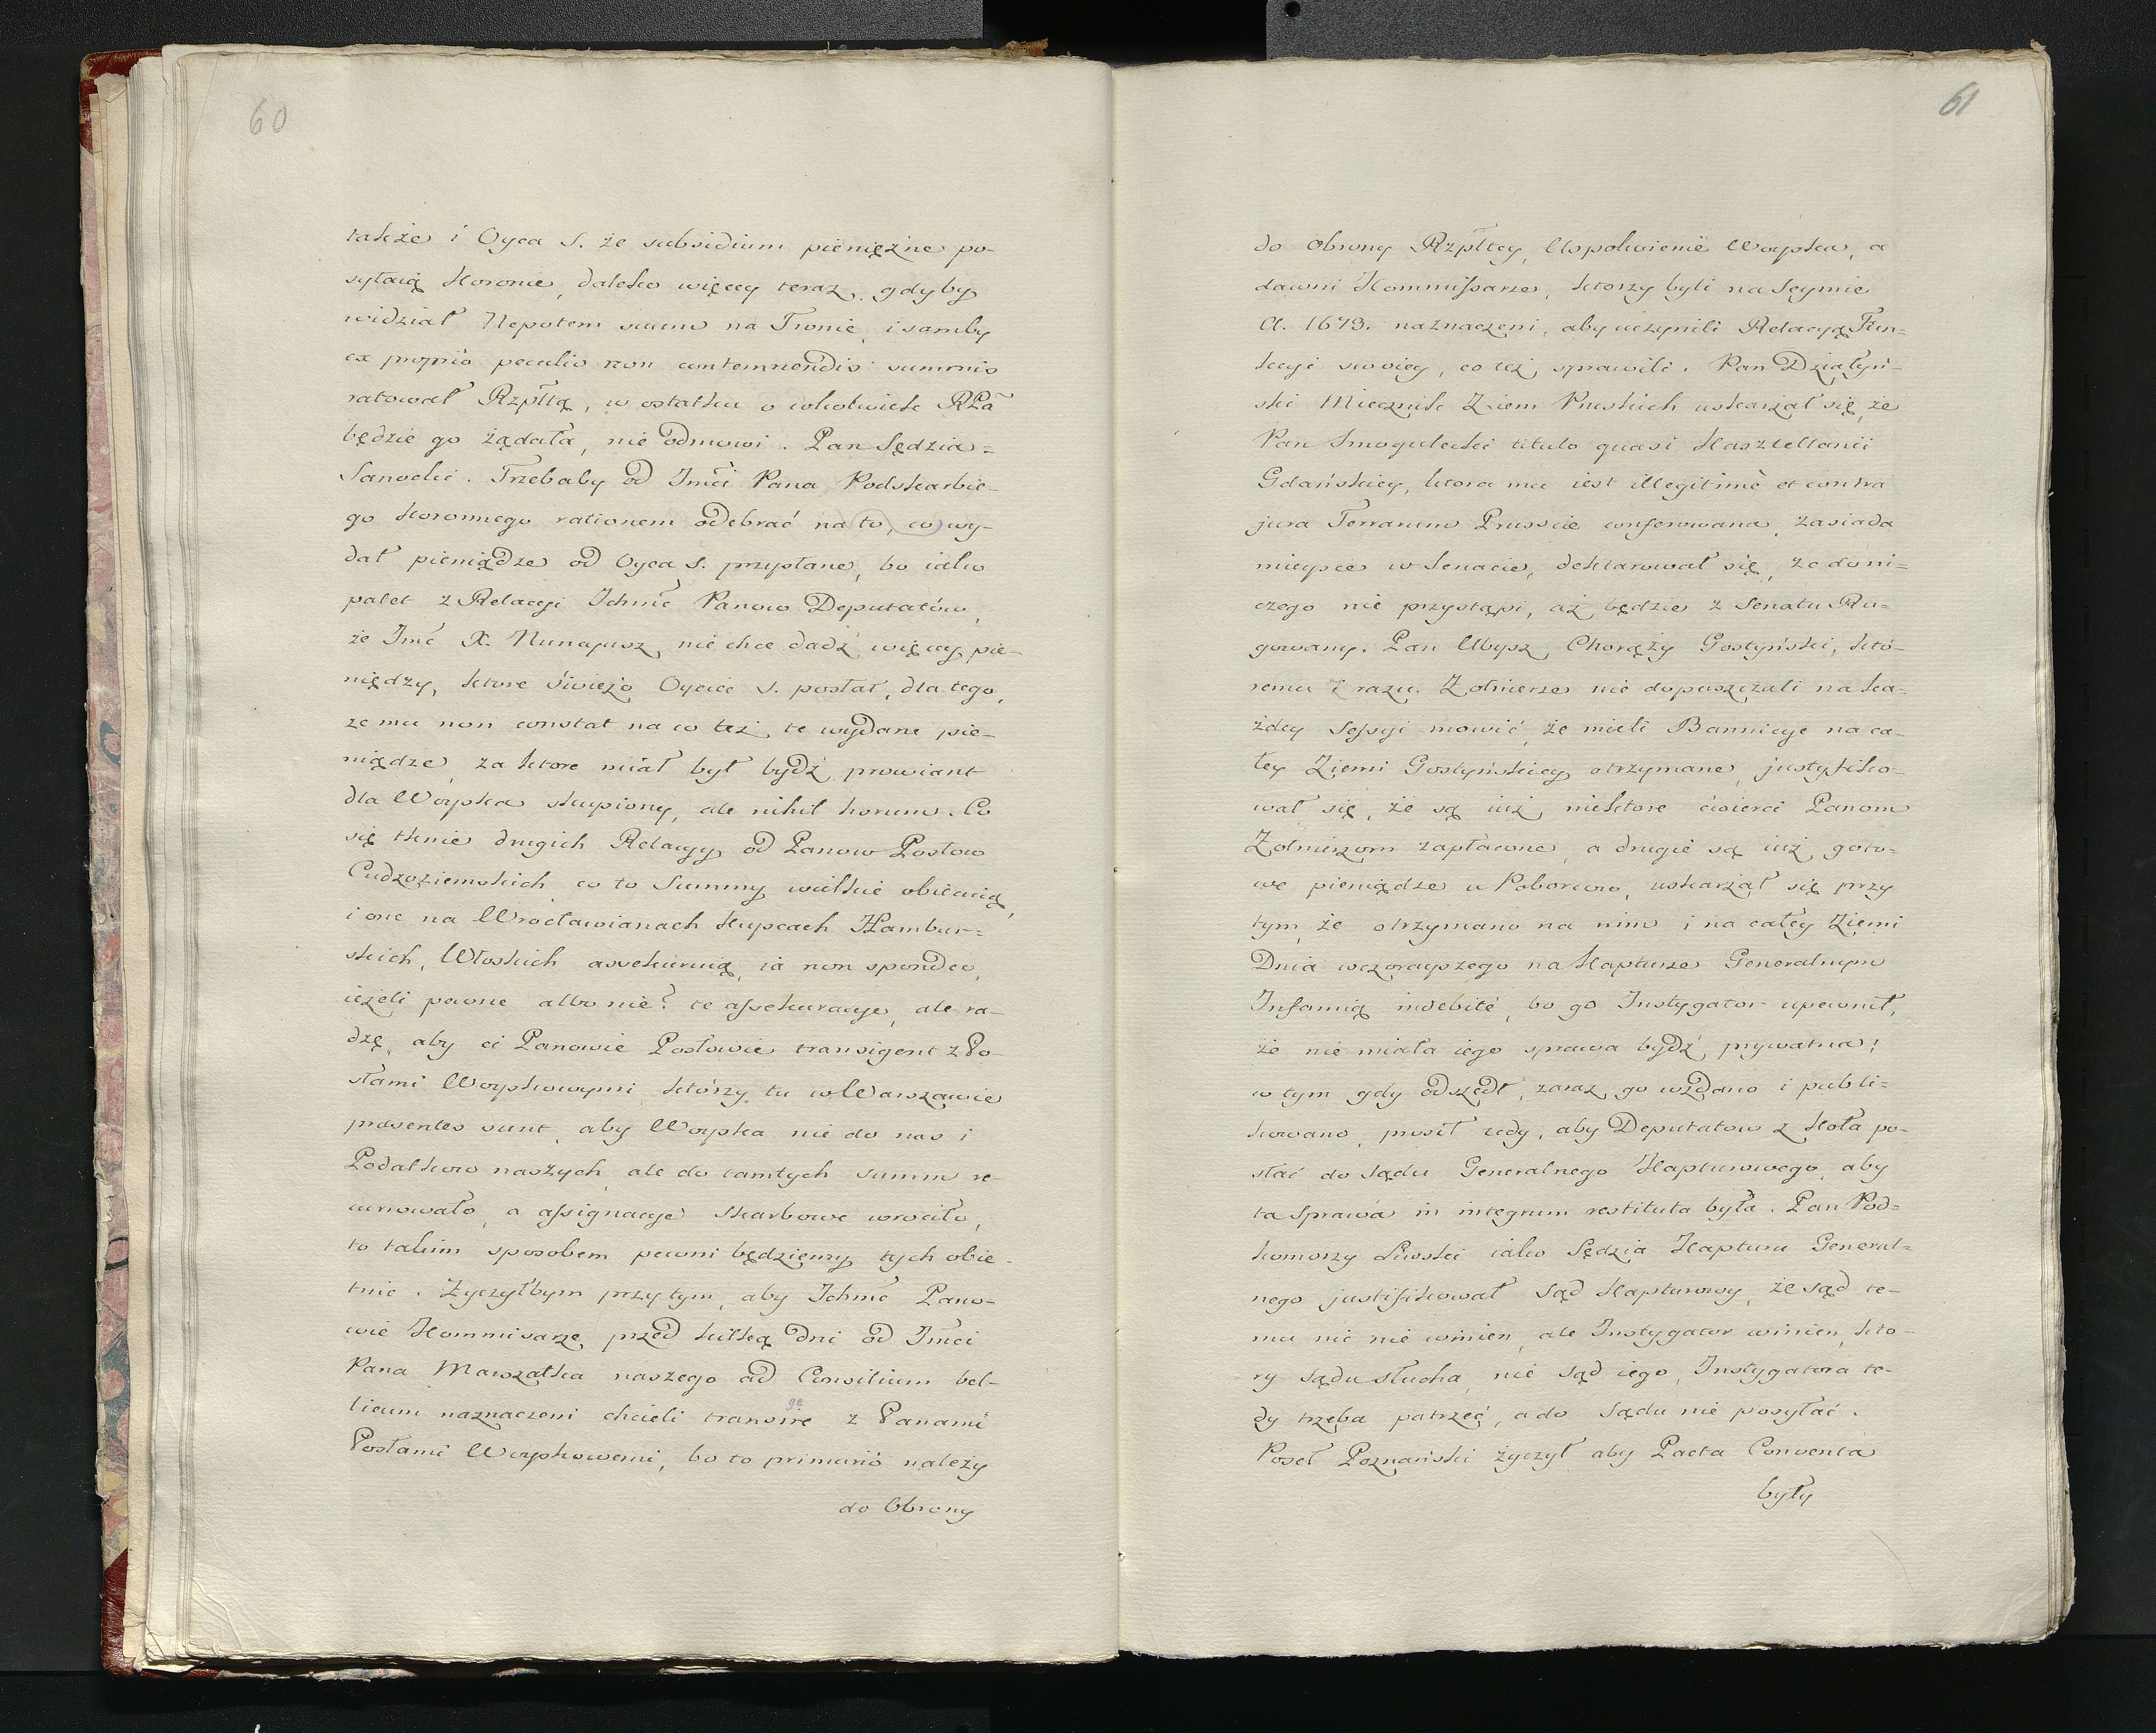 60
także i Oyca S. że subsidium pieniężne po-
syłaią Koronie, daleko więcey teraz, gdyby
widział Nepotem suum na Tronie, i samby
ex proprio peculio non contemnendis summis
ratował Rzpltą, w ostatku o cokolwiek RPa
będzie go żądała, nie odmowi. Pan Sędzia=
Sanocki. Trzebaby od Jmci Pana Podskarbie-
go Koronnego rationem odebrać na to, co wy-
dał pieniądze od Oyca S. przysłane, bo iako
patet z Relacyi Ichmc Panow Deputatów,
że Jmc X. Nuncyusz nie chce dadź więcey pie-
niędzy, ktore świeżo Ociec S. posłał, dla tego,
ze mu non constat na co też te wydane pie-
niądze, za ktore miał był bydź prowiant
dla Woyska skupiony, ale nihil horum. Co
się tknie drugich Relacyy od Panow Posłow
Cudzoziemskich, co to Summy wielkie obiecuią,
i one na Wrocławianach Kupcach Hambur=
skich, Włoskich assekuruią, ia non spondeo,
ieżeli pewne albo nie? te assekuracye, ale ra-
dzę, aby ci Panowie Posłowie transigent z Po-
słami Woyskowymi, którzy tu w Warszawie
praesentes sunt, aby Woyska nie do nas i
Podatkow naszych, ale do tamtych summ re-
curowało, a assignacye skarbowe wrociło,
to takim sposobem pewni będziemy tych obie-
tnic. Życzyłbym przy tym, aby Ichmc Pano-
wie Kommisarze przed kilką dni od Jmci
Pana Marszałka naszego ad Consilium bel-
licum naznaczeni chcieli transire z Panami
ge
Posłami Woyskowemi, bo to primario należy
do Obrony
61
do obrony Rzpltey, Uspokoienie Woyska, a
dawni Kommissarze, ktorzy byli na Seymie
A. 1673. naznaczeni, aby uczynili Relacyą Fun=
kcyi swoiey, co też sprawili. Pan Działyń-
ski Miecznik Ziem Pruskich uskarżał się, że
Pan Smogulecki titulo quasi Kasztellanii
Gdańskiey, ktora mu iest illegitimè et contra
jura Terrarum Prussiæ conferowana, zasiada
mieysce w Senacie, deklarował się, że do ni=
czego nie przystąpi, aż będzie z Senatu Ru=
gowany. Pan Ubysz Chorąży Gostyński, któ-
remu i razu. Zołnierze nie dopuszczali na ka-
żdey Sessyi mowić, że mieli Bannicye na ca-
łey Ziemi Gostyńskiey otrzymane, justyfiko-
wał się, że są iuż niektore ćwierci Panom
Zołnierzom zapłacone, a drugie są iuż goto=
we pieniądze u Poborcow, uskarżał się przy
tym, że otrzymano na nim i na całey Ziemi
Dnia wczorayszego na Kapturze Generalnym
Infamią indebitè, bo go Instygator upewnił,
że nie miała iego sprawa bydź prywatna;
w tym gdy odszedł, zaraz go wzdano i publi=
kowano, prosił tedy, aby Deputatow z Koła po-
słać do Sądu Generalnego Kapturowego, aby
ta Sprawa in integrum restituta była. Pan Pod=
komorzy Liwski iako Sędzia Kapturu General=
nego justifikował Sąd Kapturowy, że sąd te-
mu nic nie winien, ale Instygator winien, kto-
ry sądu słucha, nie sąd iego, Instygatora te-
dy trzeba patrzeć, a do Sądu nie posyłać.
Poseł Poznański życzył aby Pacta Conventa
były